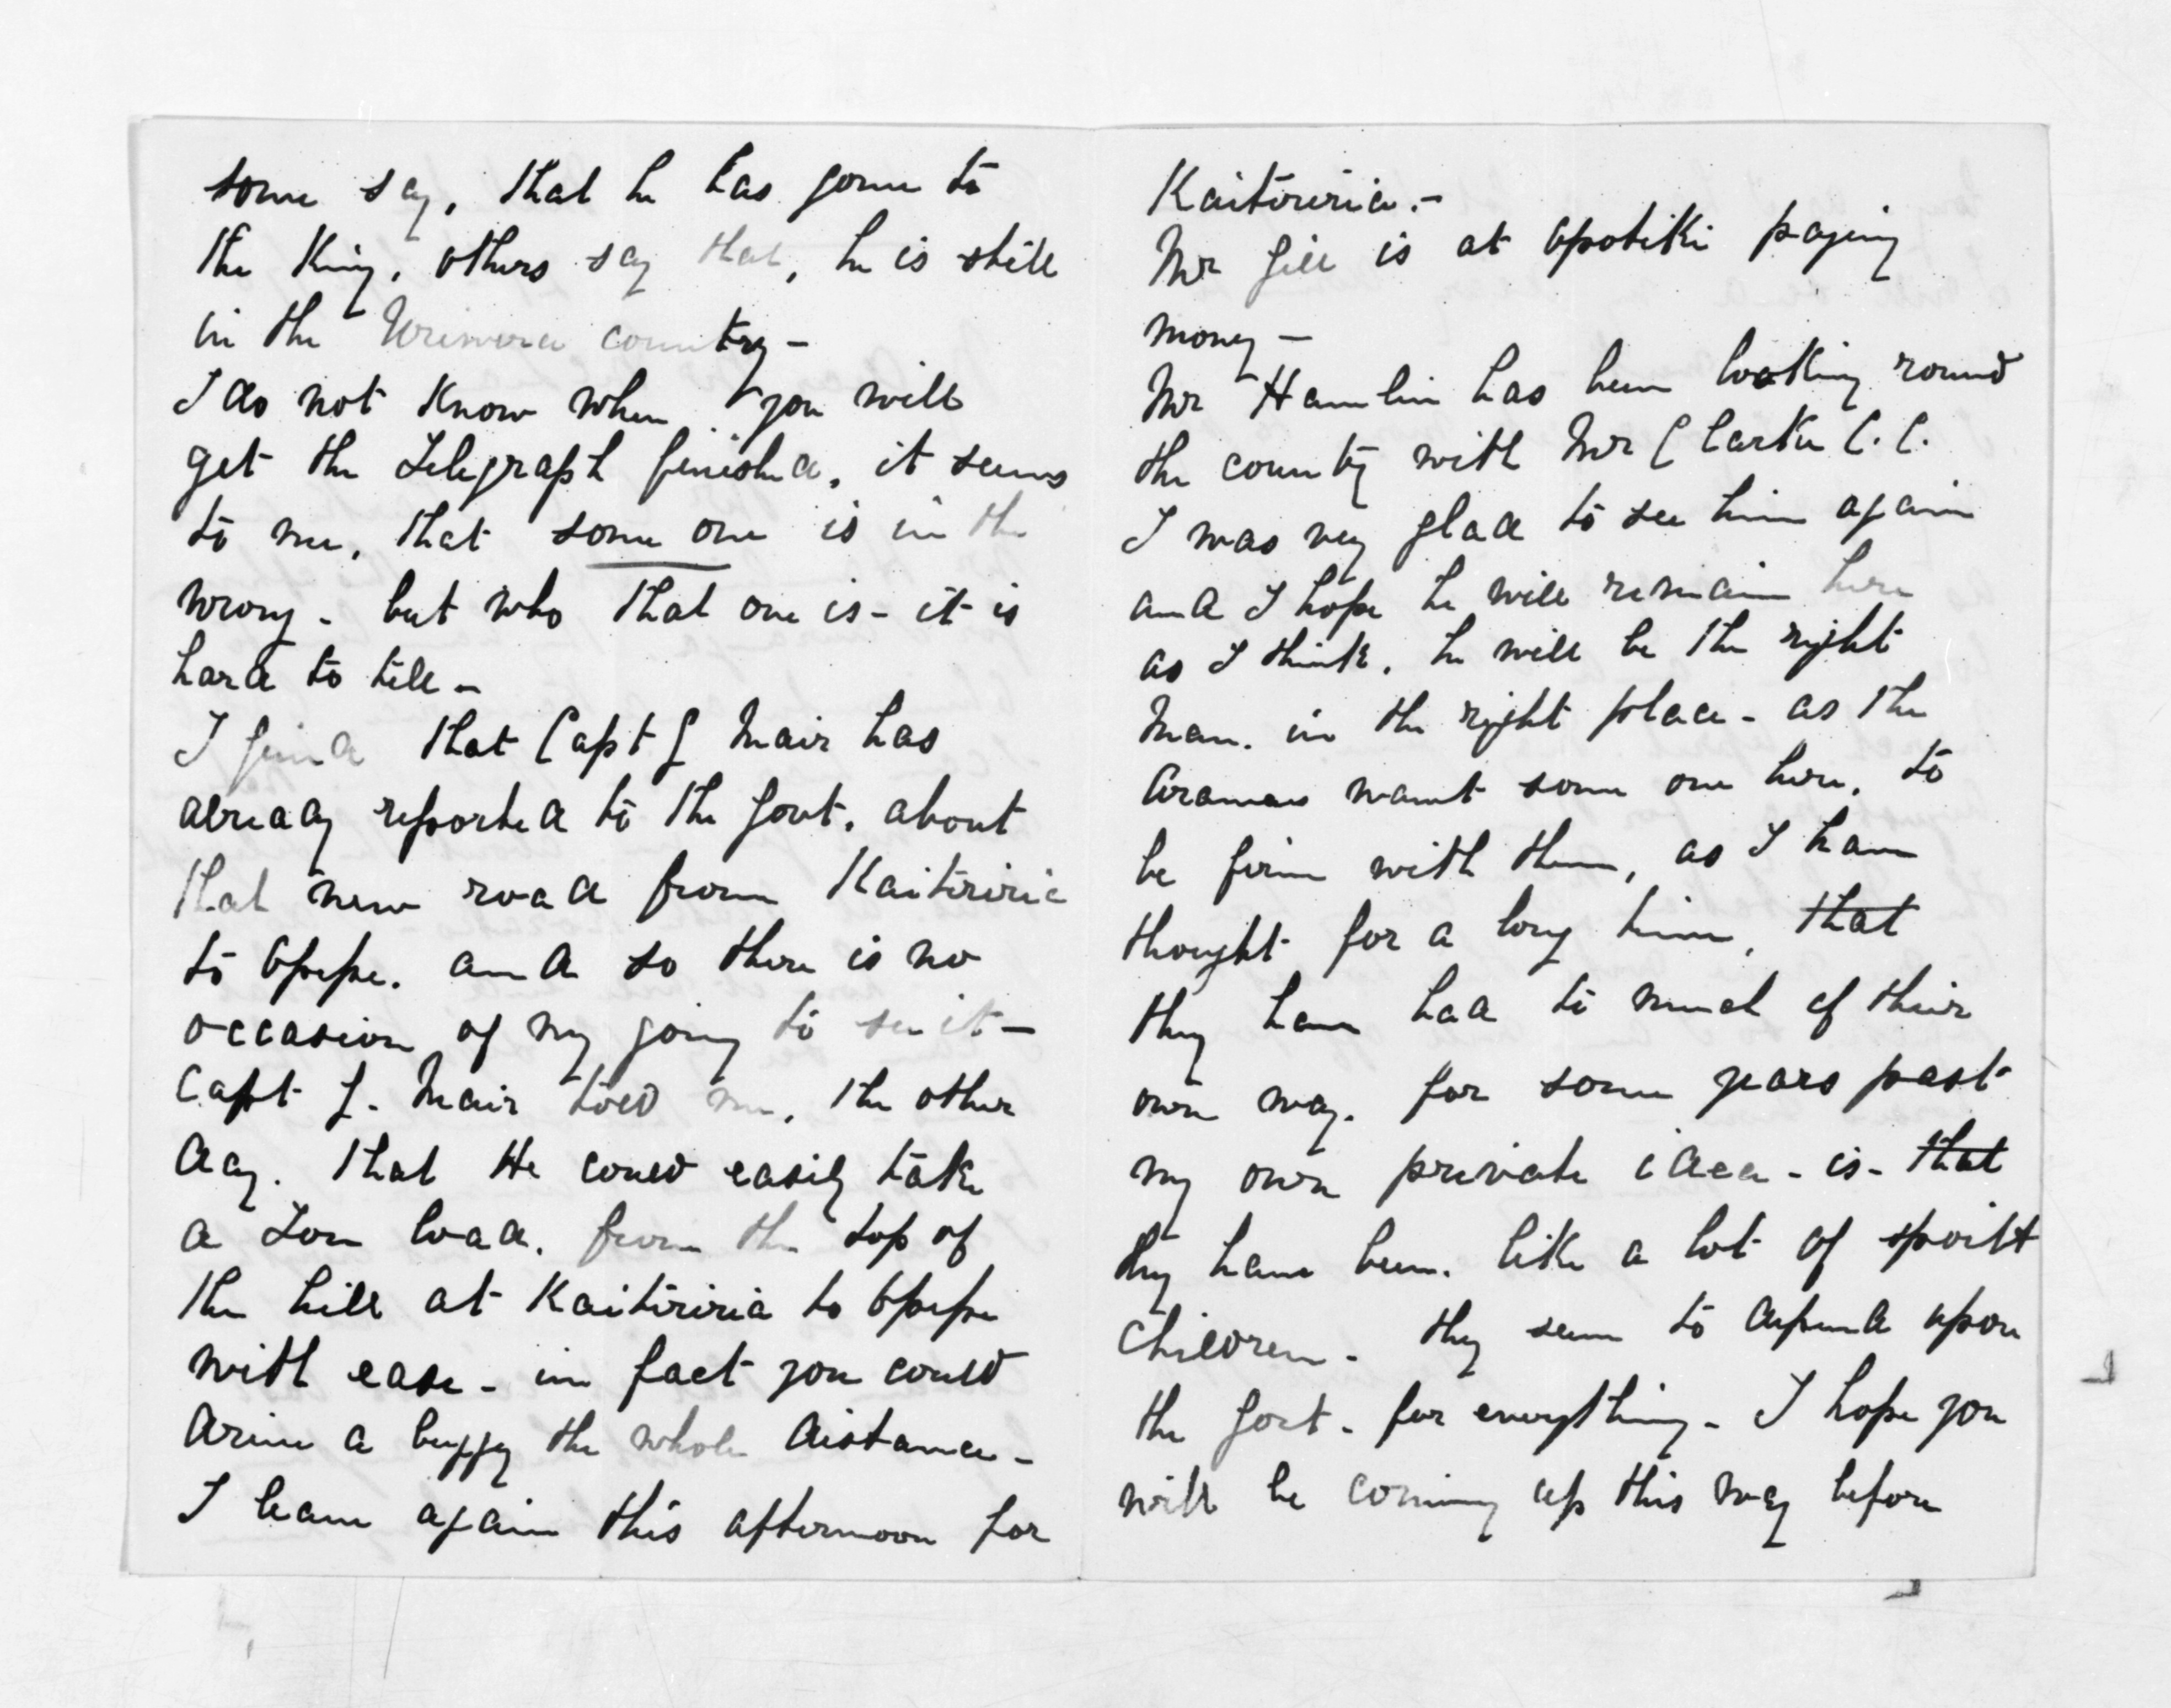 some say, that he has gone to
the King, others say that, he is still
in the Uriwera country -
I do not know when you will
get the Telegraph finished, it seems
to me, that some one is in the
wrong - but who that one is - it is
hard to tell -
I find that Capt G Mair has
already reported to the Govt. about
that new road from Kaiteriria
to Opepe. and so there is no
occasion of my going to see it -
Capt G. Mair told me, the other
day. that He could easily take
a Ton load. from the top of
the hill at Kaiteriria to Opepe
with ease - in fact you could
drive a buggy the whole distance -
I leave again this afternoon for
Kaiteriria. -
Mr Gill is at Opotiki paying
money -
Mr Hamlin has been looking round
the country with Mr Clarke C. C.
I was very glad to see him again
and I hope he will remain here
as I think, he will be the right
Man. in the right place - as the
Arawas want some one here, to
be firm with them, as I have
thought for a long time, that
they have had to much of their
own way. for some years past
my own private idea - is - that
they have been. like a lot of spoilt
children - they seem to depend upon
the Govt - for everything - I hope you
will be coming up this way before